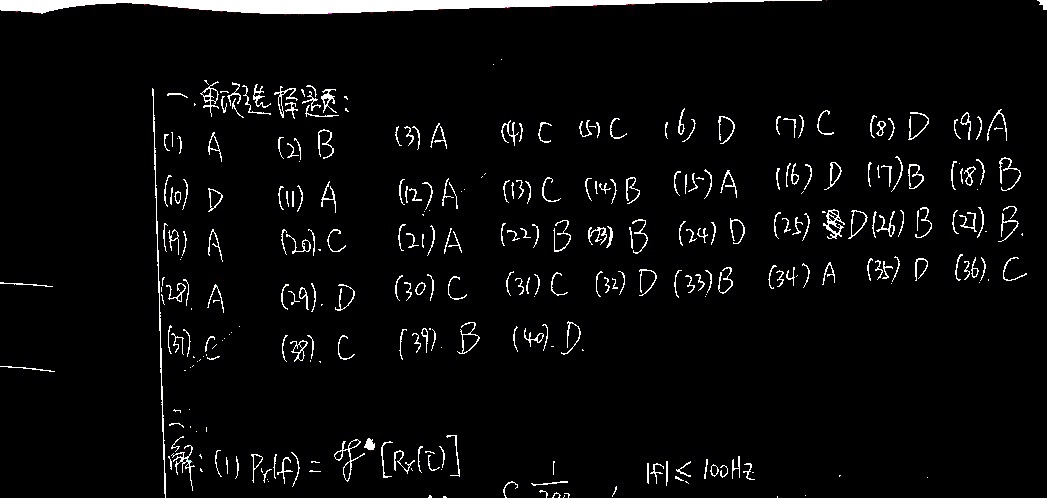 一.单项选择题:
(1) A (2) B (3) A (4) C (5) C (6) D (7) C (8) D (9) A
(10) D (11) A (12) A (13) C (14) B (15) A (16) D (17) B (18) B
(19) A (20). C (21) A (22) B (23) B (24) D (25) D (26) B (27). B.
(28). A (29). D (30) C (31) C (32) D (33) B (34) A (35) D (36). C
(37). C (38). C (39). B (40). D.
二...
解: (1) Px(f) = ℱ [Rx(τ)]
1/200 , |f| ≤ 100Hz